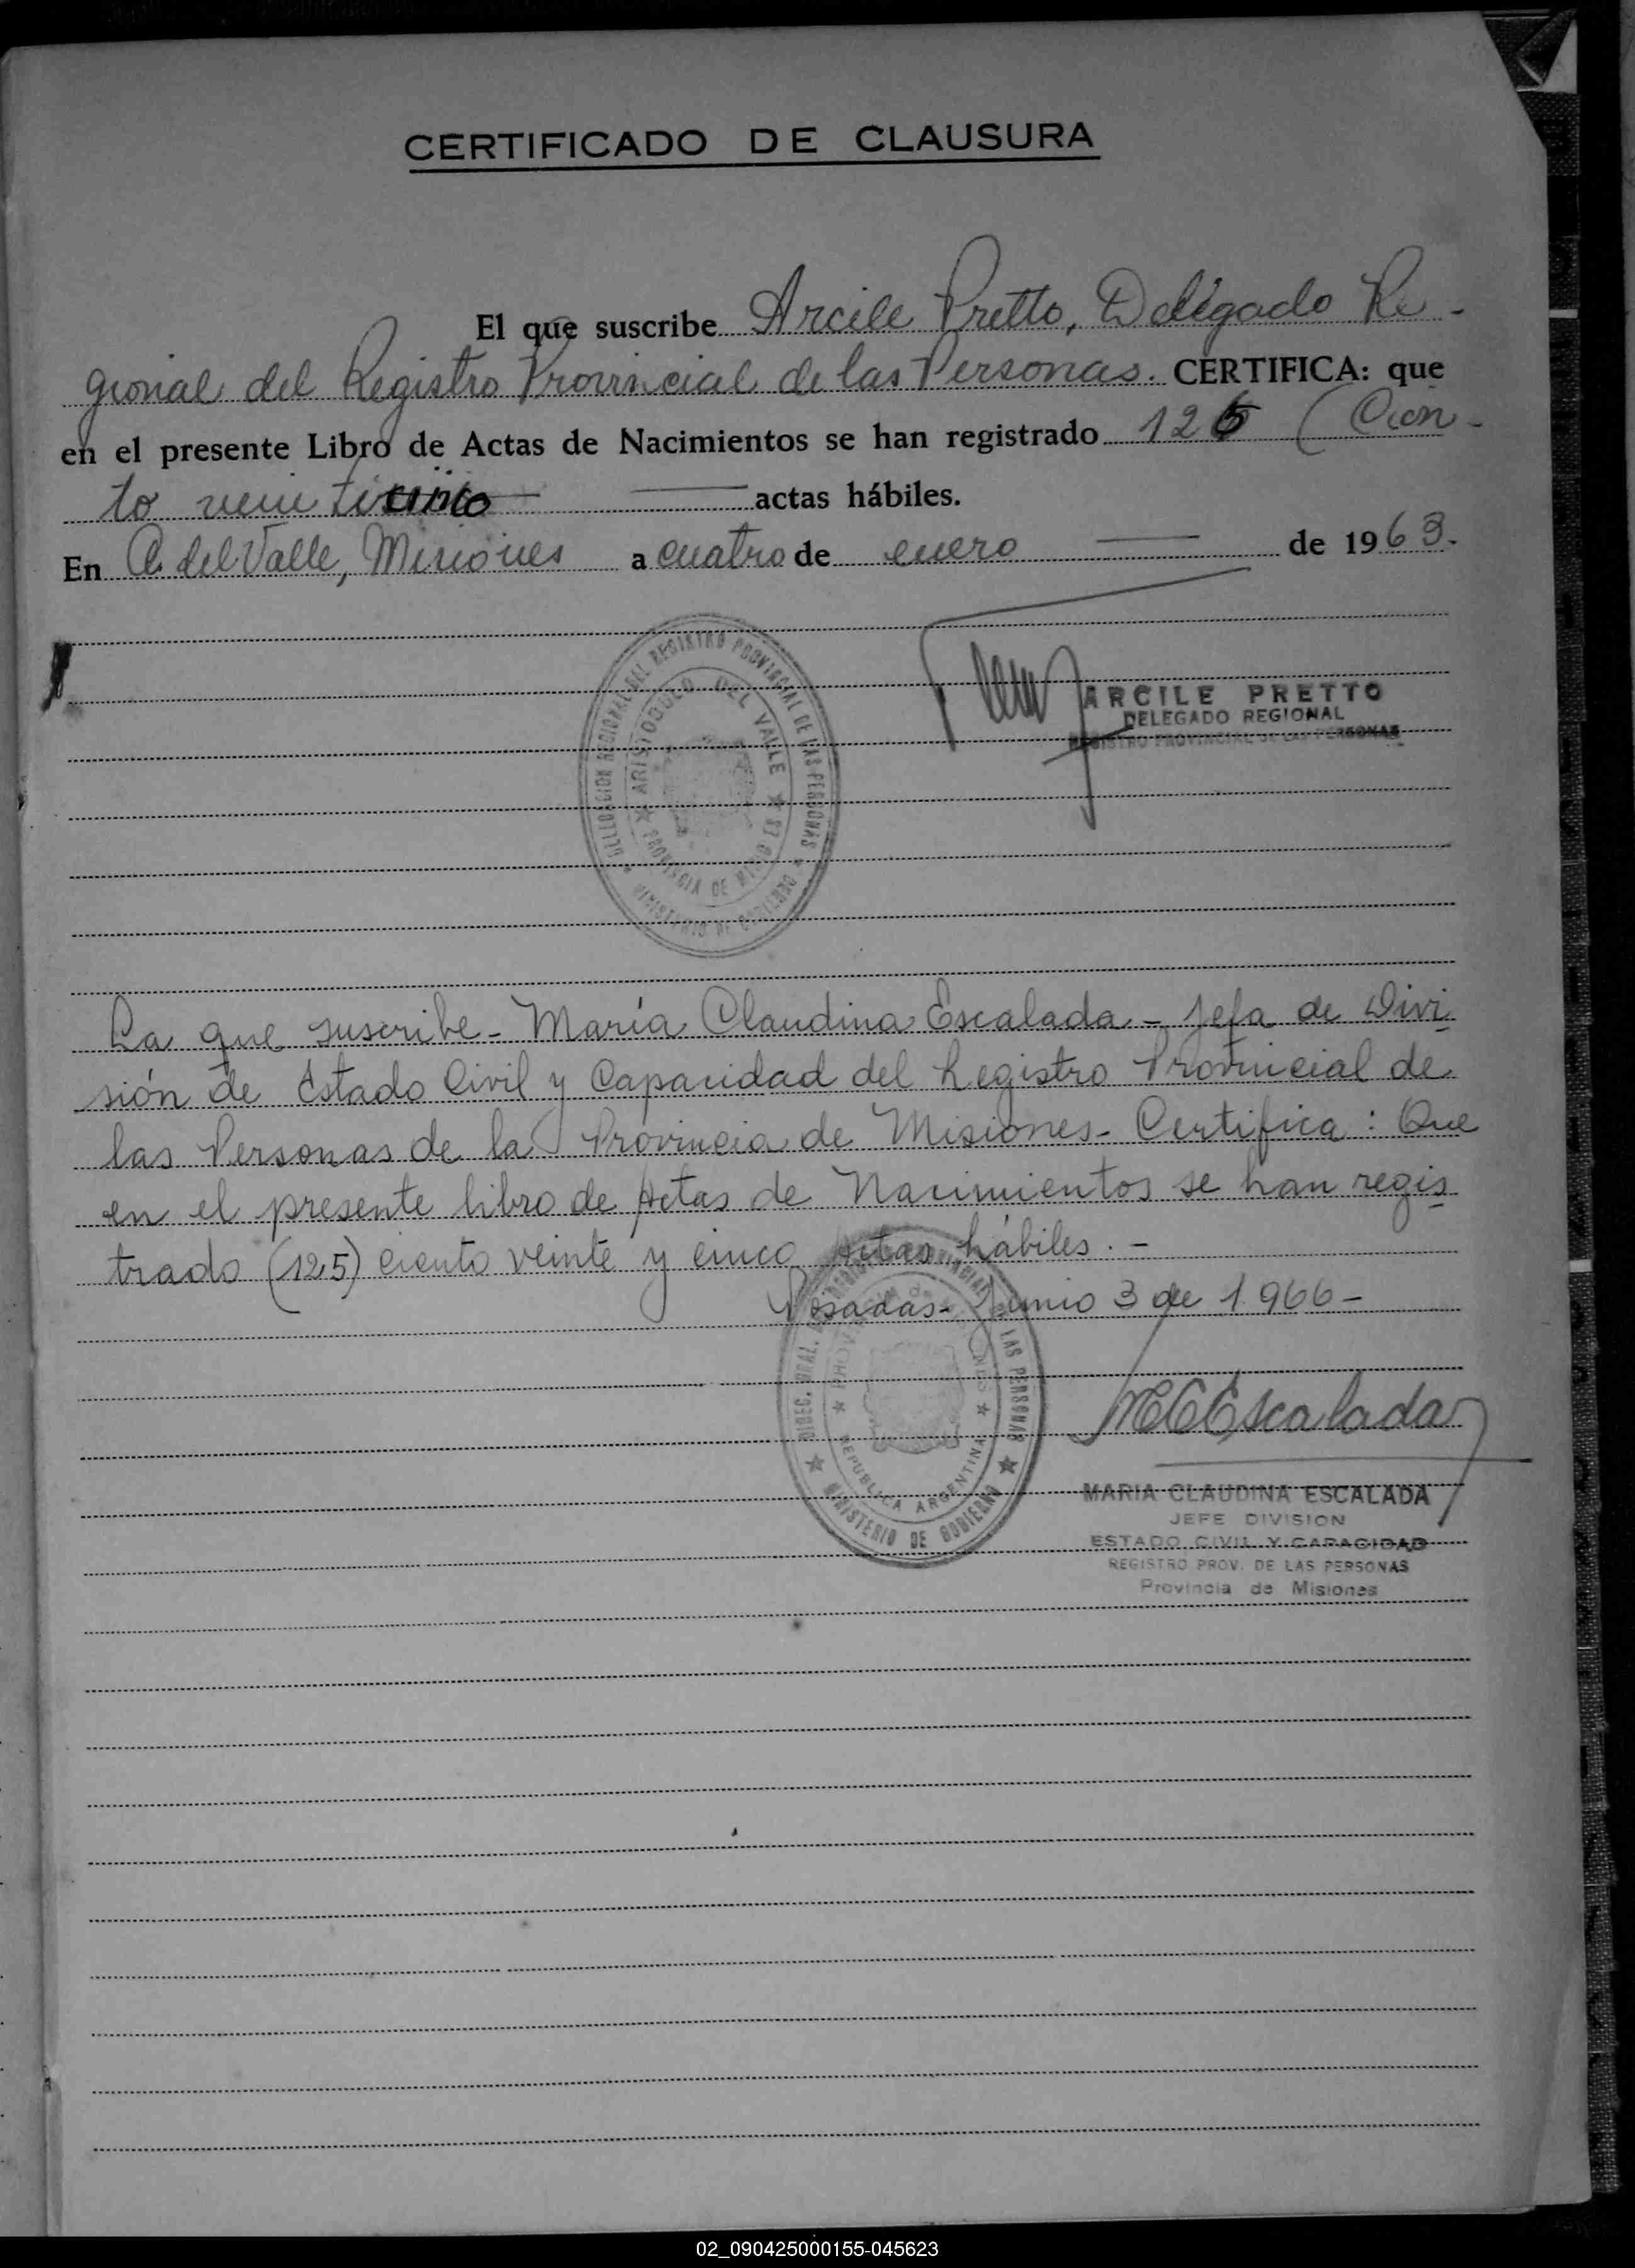 CERTIFICADO DE CLAUSURA
El que suscribe Arcile Pretto, Delegado Re-
gional del Registro Provincial de las Personas. CERTIFICA: que
en el presente Libro de Actas de Nacimientos se han registrado 125 (Cien-
to veinticinco actas hábiles.
En A. del Valle, Misiones a cuatro de enero de 1963.
DELEGACION REGIONAL DEL REGISTRO PROVINCIAL DE LAS PERSONAS
ARISTOBULO DEL VALLE
PROVINCIA DE
ARCILE PRETTO
DELEGADO REGIONAL
REGISTRO PROVINCIAL DE LAS PERSONAS
La que suscribe - María Claudina Escalada - Jefa de Divi
sión de Estado Civil y Capacidad del Registro Provincial de
las Personas de la Provincia de Misiones - Certifica: Que
en el presente libro de Actas de Nacimientos se han regis
trado (125) ciento veinte y cinco Actas hábiles. -
Posadas - Junio 3 de 1966 -
DIREC. GRAL. LAS PERSONAS
REPUBLICA ARGENTINA
MINISTERIO DE GOBIERNO
MCEscalada
MARIA CLAUDINA ESCALADA
JEFE DIVISION
ESTADO CIVIL Y CAPACIDAD
REGISTRO PROV. DE LAS PERSONAS
Provincia de Misiones
02_090425000155-045623